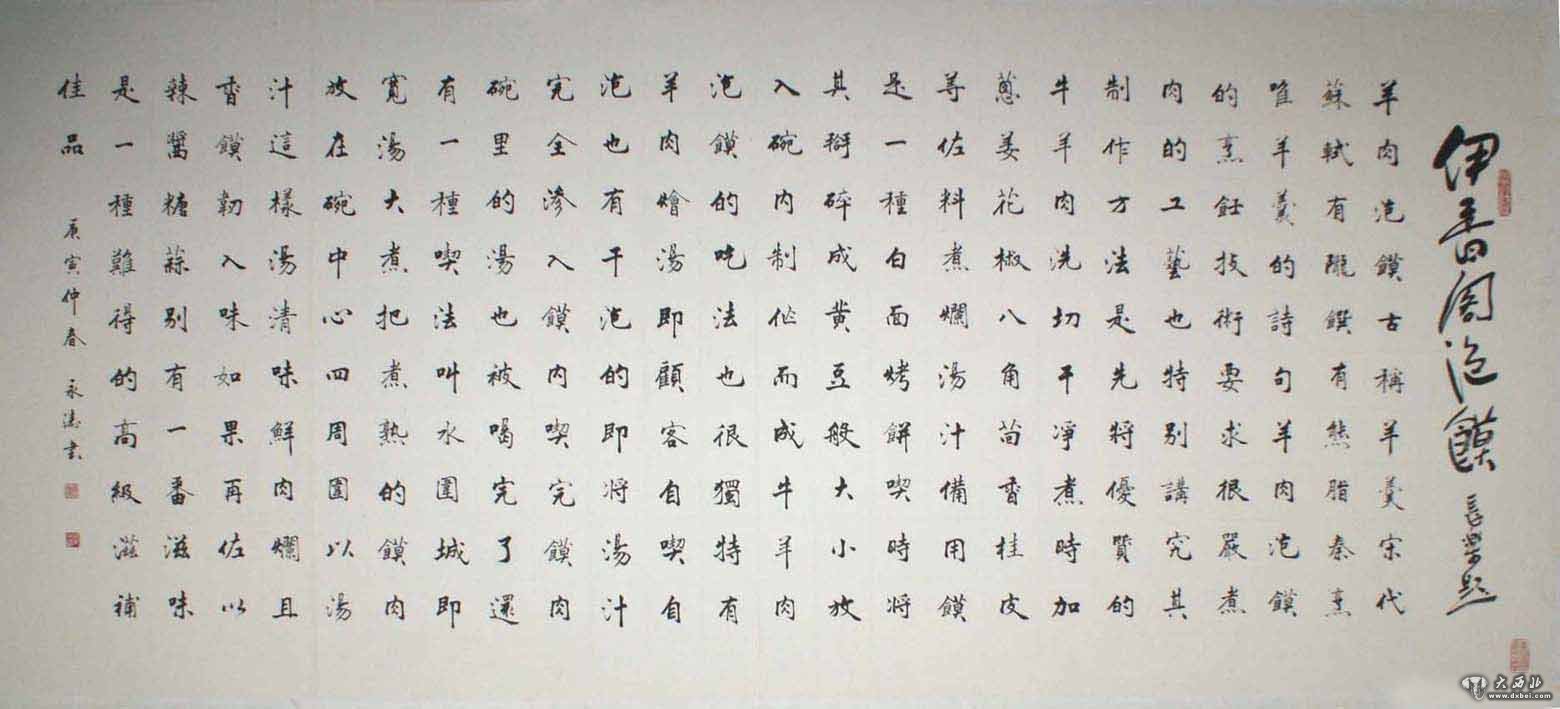 伊香阁泡饃
羊肉泡饃古稱羊羹宋代
蘇軾有隴饌有熊脂秦烹
唯羊羹的詩句羊肉泡饃
的烹飪技術要求很嚴煮
肉的工藝也特別講究其
制作方法是先將優質的
牛羊肉洗切干凈煮時加
蔥姜花椒八角茴香桂皮
等佐料煮爛湯汁備用饃
是一種白面烤餅喫時將
其掰碎成黄豆般大小放
入碗内制作而成牛羊肉
泡饃的吃法也很獨特有
羊肉燴湯即顧客自喫自
泡也有干泡的即將湯汁
完全滲入饃内喫完饃肉
碗里的湯也被喝完了還
有一種喫法叫水圍城即
寬湯大煮把煮熟的饃肉
放在碗中心四周圍以湯
汁這樣湯清味鮮肉爛且
香饃韌入味如果再佐以
辣醬糖蒜别有一番滋味
是一種難得的高級滋補
佳品
庚寅仲春 永濤書
大西北
www.dxbei.com